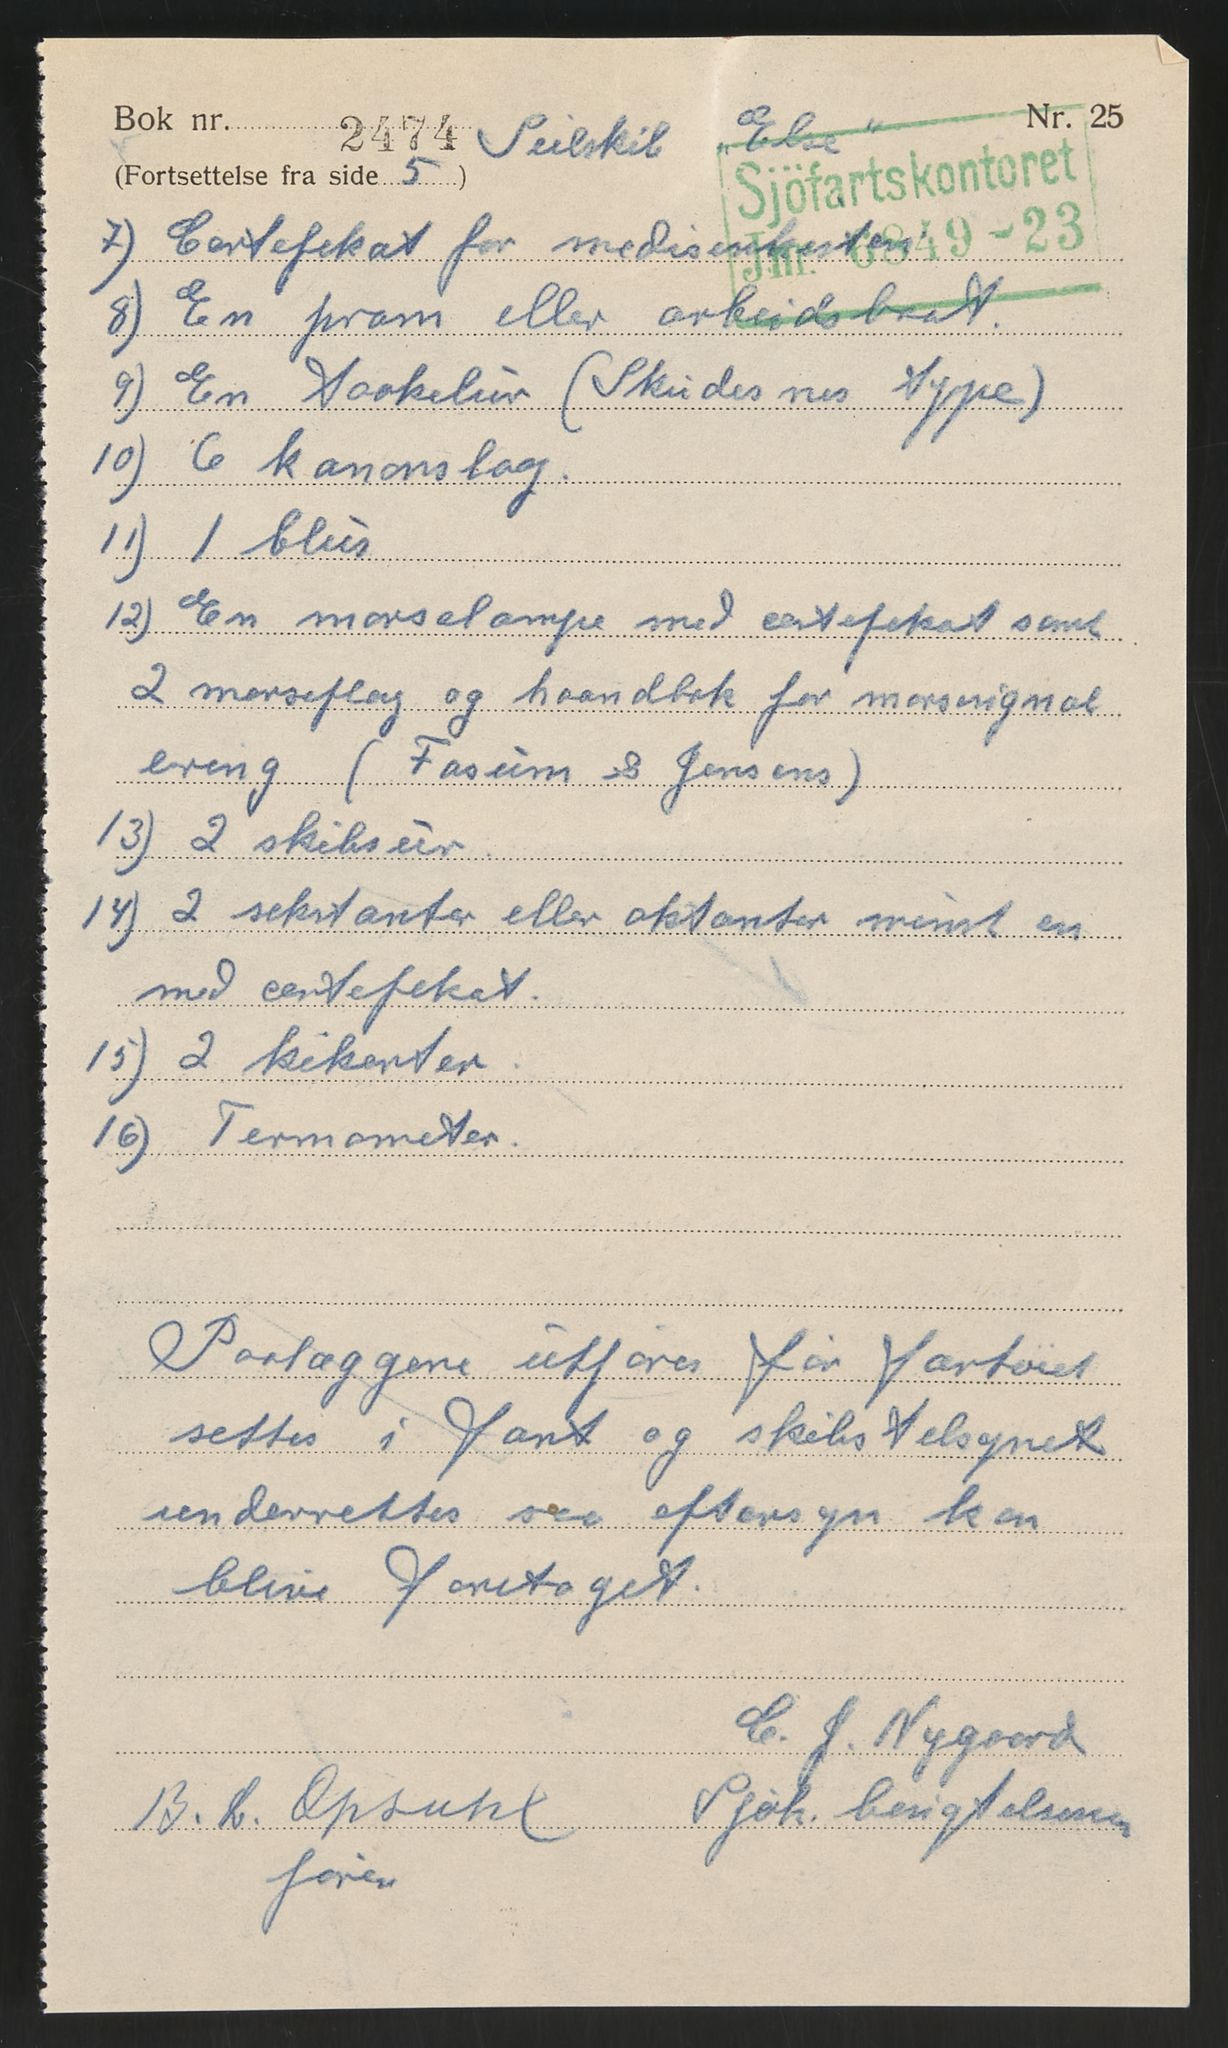 Bok nr. 2474 Seilskib „Else" Nr. 25
(Fortsettelse fra side 5)
Sjöfartskontoret
Jnr. 6849-23
7) Certefekat for medisenkesten
8) En pram eller arbeidsbaat.
9) En taakelur (Skudesnes type)
10) 6 kanonslag.
11) 1 blus
12) En morselampe med certefekat samt
2 morseflag og haandbok for morsesignal
ering (Fasum & Jensens)
13) 2 skibsur.
14) 2 sekstanter eller oktanter minst en
med certefekat.
15) 2 kikerter.
16) Termometer.
Paalæggene utføres før fartøiet
settes i fart og skibstelsynet
underrettes saa eftersyn kan
blive foretaget.
C. J. Nygaard
B. L. Opsuhl Sjøk. besigtelsesm
fører